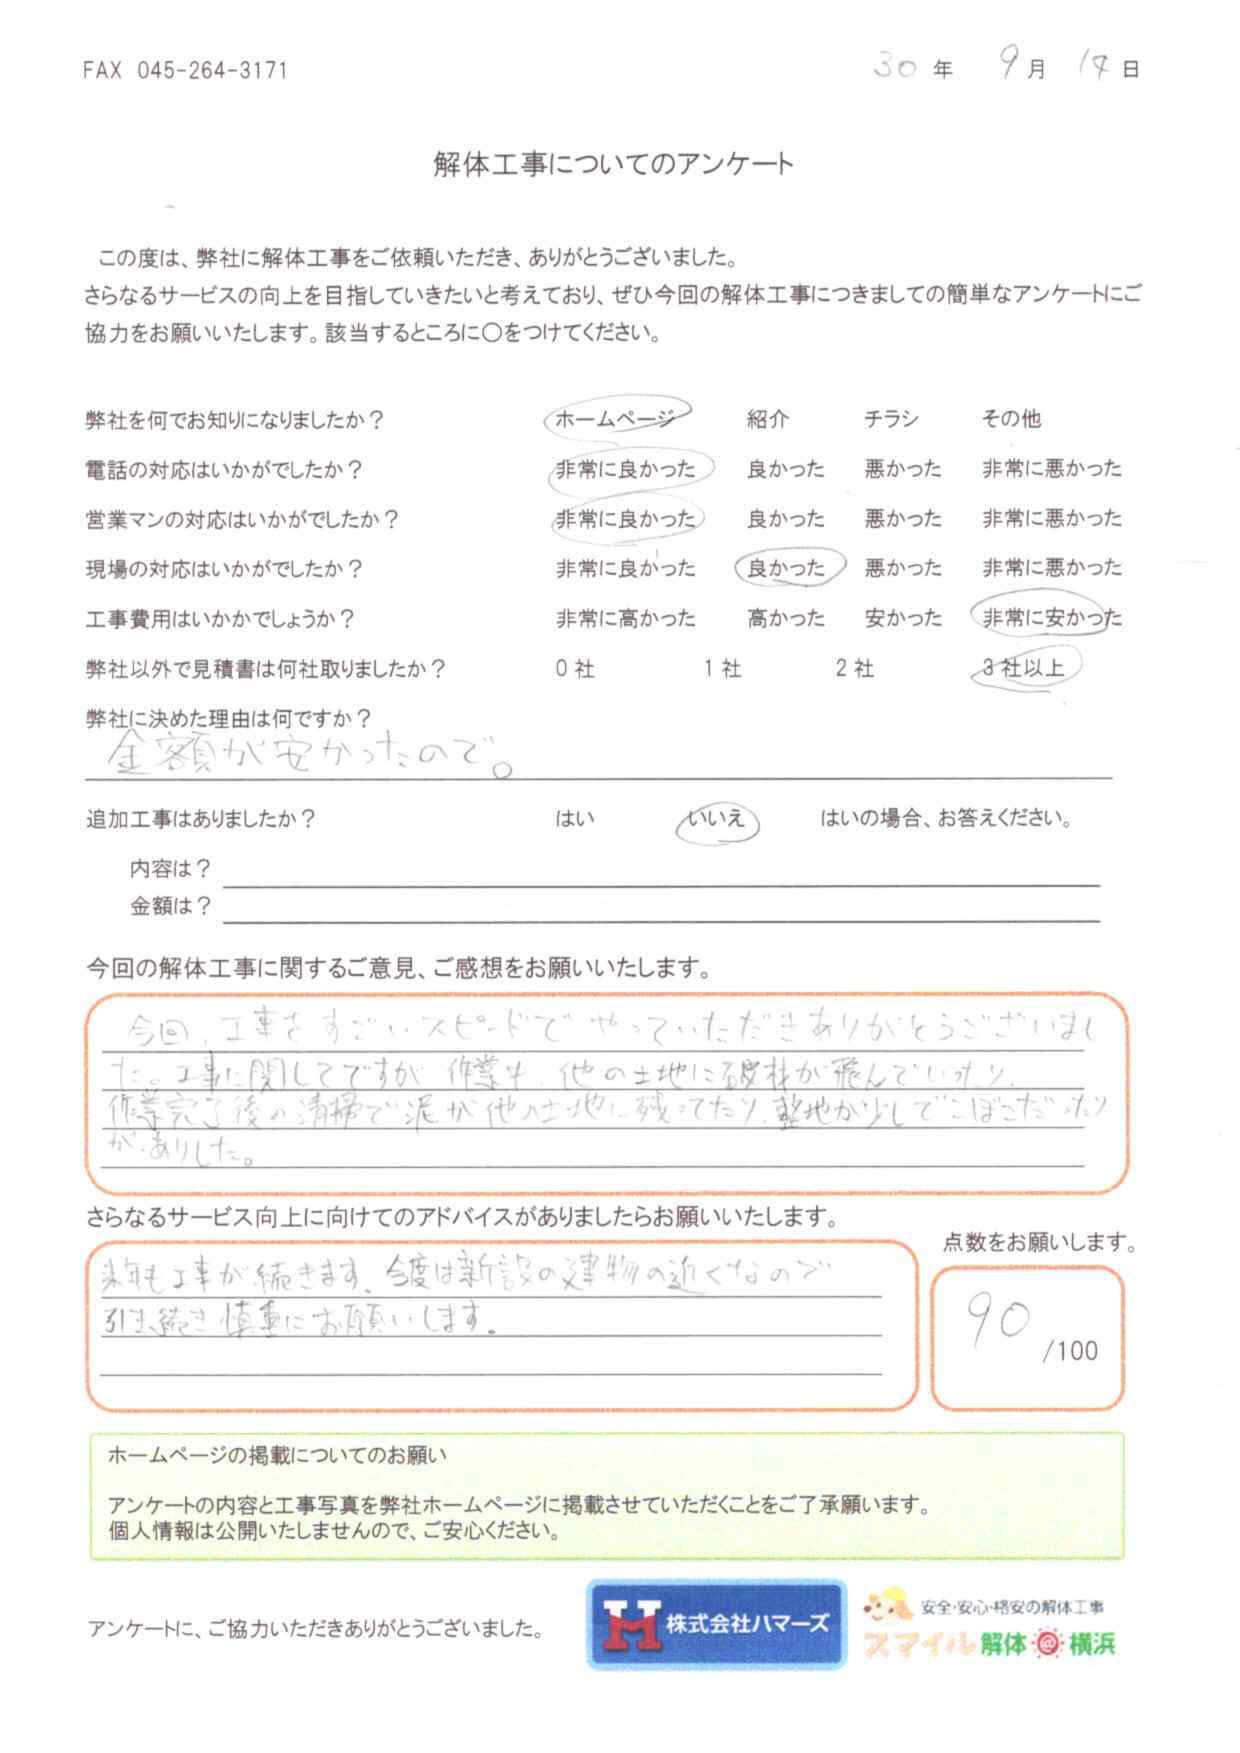 FAX 045-264-3171
30年 9月 14日
解体工事についてのアンケート
この度は、弊社に解体工事をご依頼いただき、ありがとうございました。
さらなるサービスの向上を目指していきたいと考えており、ぜひ今回の解体工事につきましての簡単なアンケートにご
協力をお願いいたします。該当するところに〇をつけてください。
弊社を何でお知りになりましたか？ ホームページ 紹介 チラシ その他
電話の対応はいかがでしたか？ 非常に良かった 良かった 悪かった 非常に悪かった
営業マンの対応はいかがでしたか？ 非常に良かった 良かった 悪かった 非常に悪かった
現場の対応はいかがでしたか？ 非常に良かった 良かった 悪かった 非常に悪かった
工事費用はいかかでしょうか？ 非常に高かった 高かった 安かった 非常に安かった
弊社以外で見積書は何社取りましたか？ 0社 1社 2社 3社以上
弊社に決めた理由は何ですか？
金額が安かったので。
追加工事はありましたか？ はい いいえ はいの場合、お答えください。
内容は？
金額は？
今回の解体工事に関するご意見、ご感想をお願いいたします。
今回、工事をすごいスピードでやっていただきありがとうございまし
た。工事に関してですが 作業中、他の土地に破材が飛んでいったり、
作業完了後の清掃で泥が他の土地に残ってたり、整地が少しでこぼこだったり
がありした。
さらなるサービス向上に向けてのアドバイスがありましたらお願いいたします。
点数をお願いします。
来年も工事が続きます。今度は新設の建物の近くなので
引き続き慎重にお願いします。
90
/100
ホームページの掲載についてのお願い
アンケートの内容と工事写真を弊社ホームページに掲載させていただくことをご了承願います。
個人情報は公開いたしませんので、ご安心ください。
アンケートに、ご協力いただきありがとうございました。
H 株式会社ハマーズ
安全・安心・格安の解体工事
スマイル解体@横浜